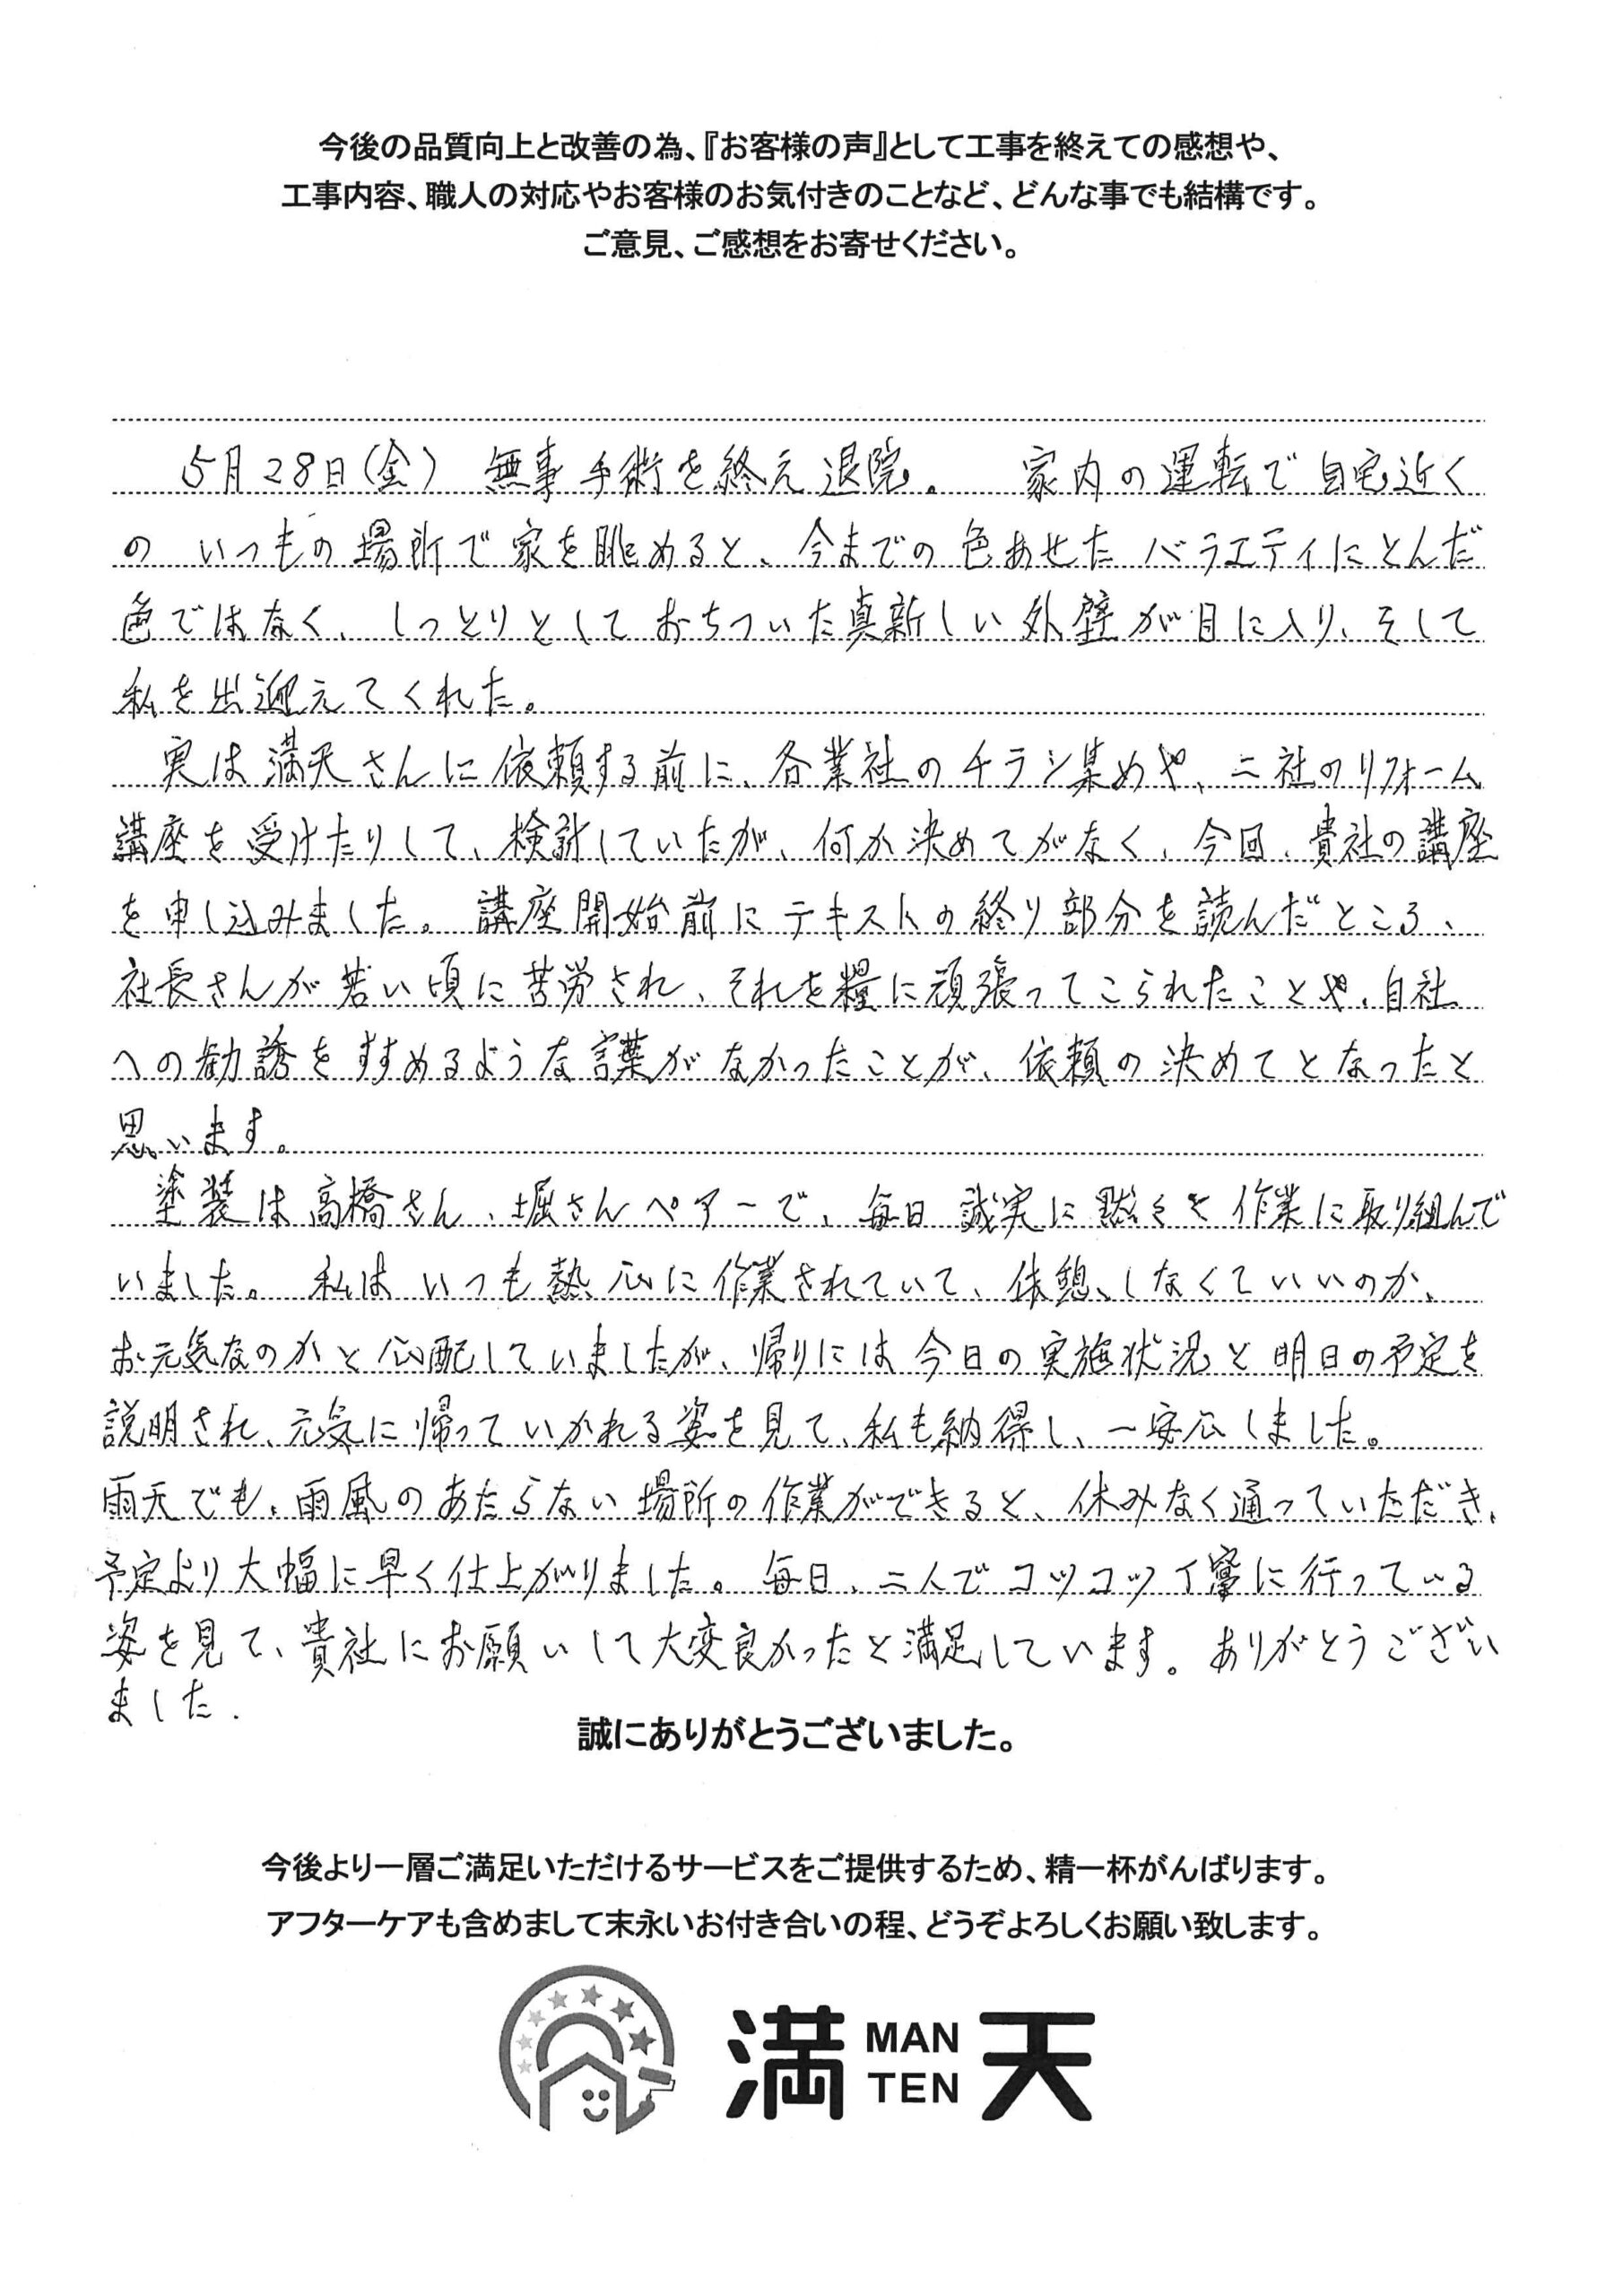 今後の品質向上と改善の為、『お客様の声』として工事を終えての感想や、
工事内容、職人の対応やお客様のお気付きのことなど、どんな事でも結構です。
ご意見、ご感想をお寄せください。
5月28日(金) 無事手術を終え退院。 家内の運転で自宅近く
の いつもの場所で家を眺めると、今までの色あせたバラエティにとんだ
色ではなく、しっとりとしておちついた真新しい外壁が目に入り、そして
私を出迎えてくれた。
実は満天さんに依頼する前に、各業社のチラシ集めや、二社のリフォーム
講座を受けたりして、検討していたが、何か決めてがなく、今回、貴社の講座
を申し込みました。講座開始前にテキストの終り部分を読んだところ、
社長さんが若い頃に苦労され、それを糧に頑張ってこられたことや、自社
への勧誘をすすめるような言葉がなかったことが、依頼の決めてとなったと
思います。
塗装は高橋さん、堀さんペアーで、毎日 誠実に黙々と作業に取り組んで
いました。私は いつも熱心に作業されていて、休憩しなくていいのか、
お元気なのかと心配していましたが、帰りには今日の実施状況と明日の予定を
説明され、元気に帰っていかれる姿を見て、私も納得し、一安心しました。
雨天でも、雨風のあたらない場所の作業ができると、休みなく通っていただき、
予定より大幅に早く仕上がりました。毎日、二人でコツコツ丁寧に行っている
姿を見て、貴社にお願いして大変良かったと満足しています。ありがとうござい
ました.
誠にありがとうございました。
今後より一層ご満足いただけるサービスをご提供するため、精一杯がんばります。
アフターケアも含めまして末永いお付き合いの程、どうぞよろしくお願い致します。
満 MAN TEN 天